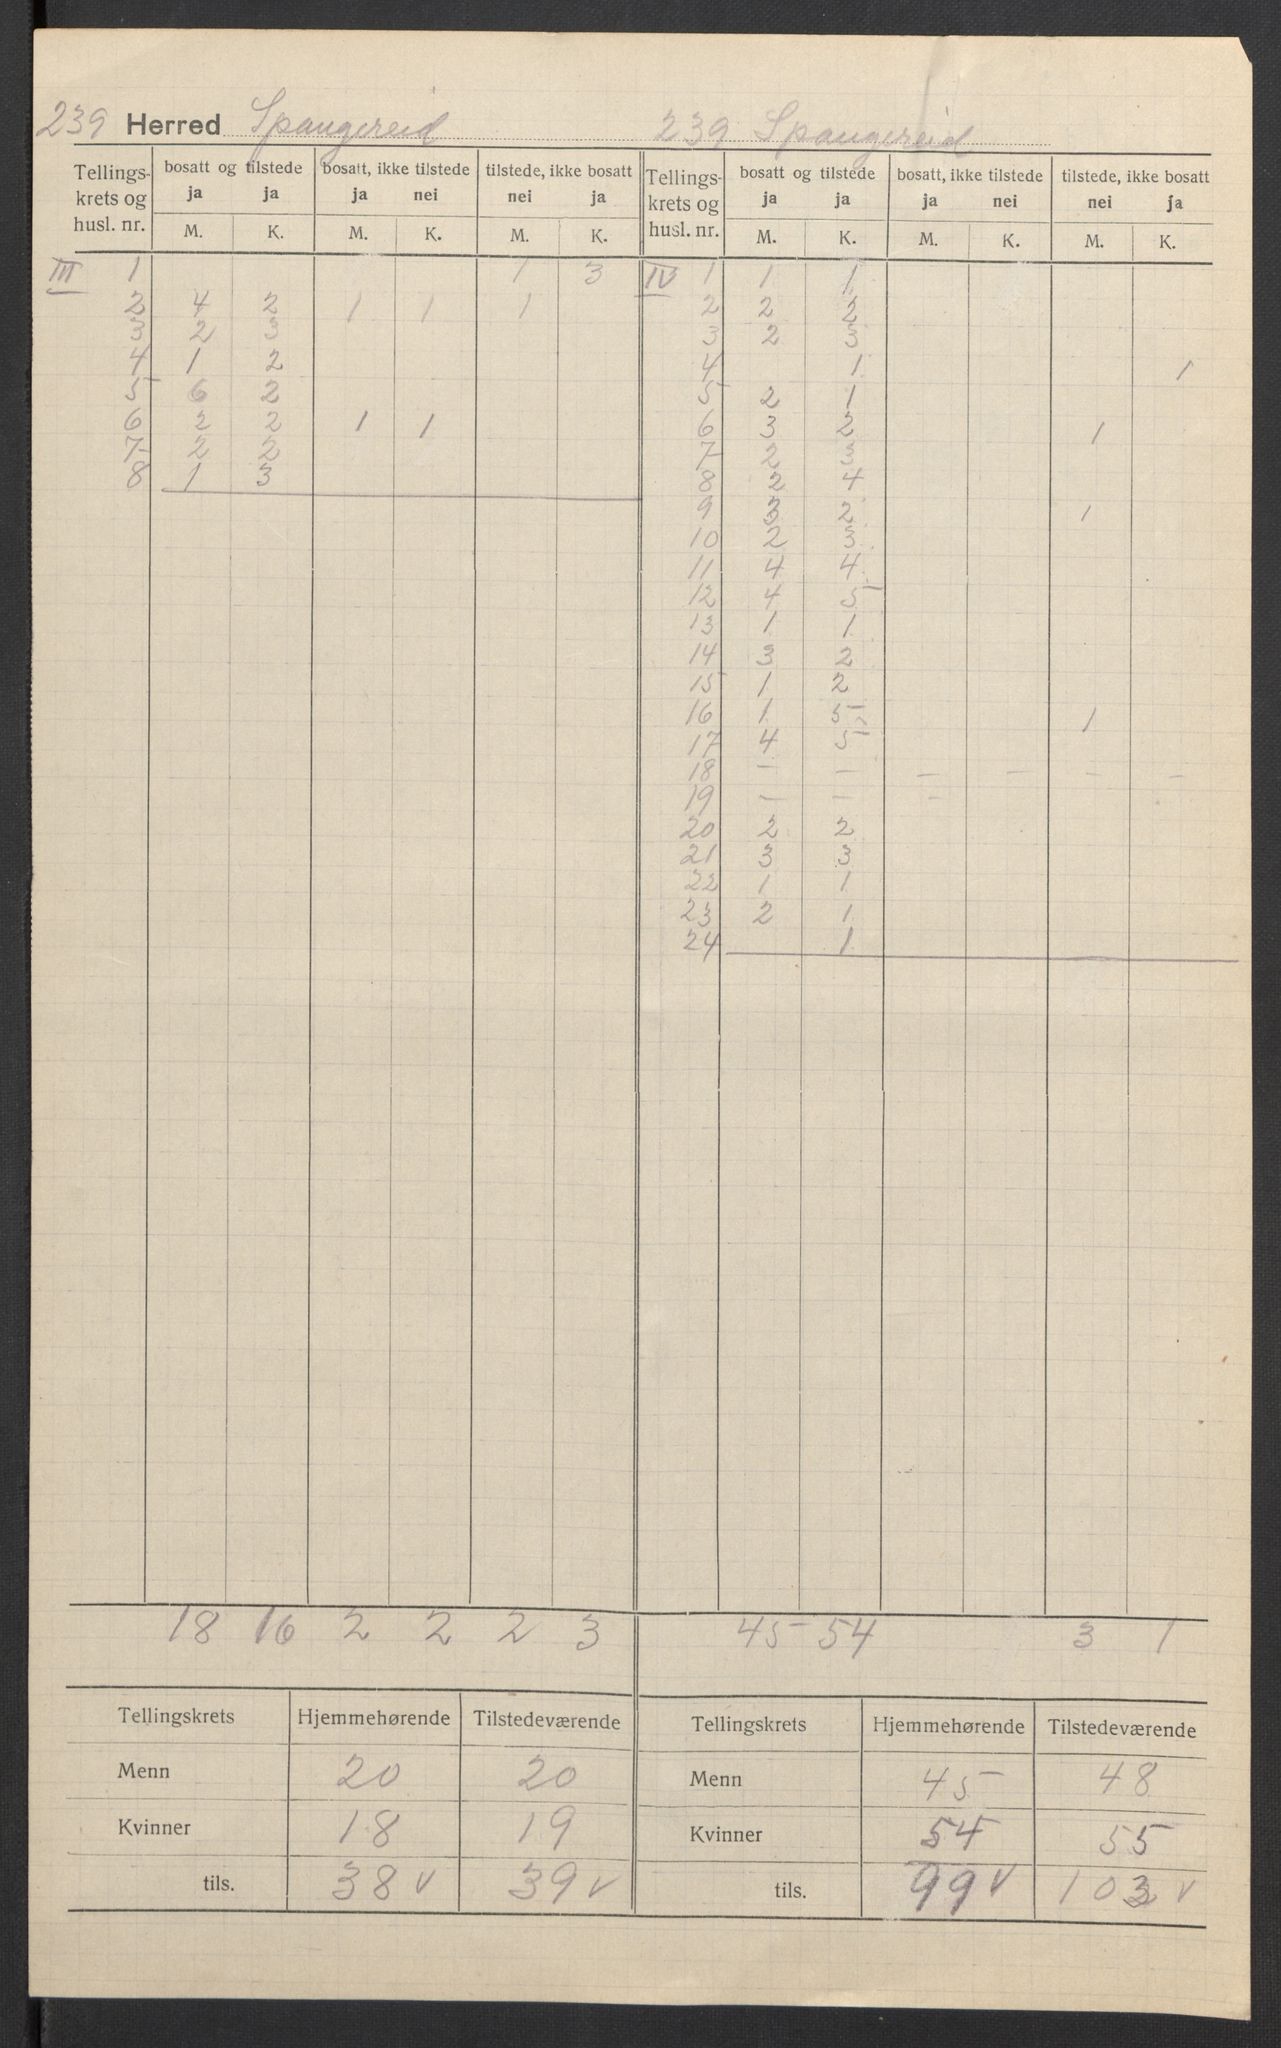 239 Herred Spangereid 239 Spangereid
Tellings- krets og husl. nr. | bosatt og tilstede | bosatt, ikke tilstede | tilstede, ikke bosatt | Tellings- krets og husl. nr. | bosatt og tilstede | bosatt, ikke tilstede | tilstede, ikke bosatt
ja ja | ja nei | nei ja | ja ja | ja nei | nei ja
M. K. M. K. M. K. M. K. M. K. M. K.
III 1 1 3 IV 1 1 1
2 4 2 1 1 1 2 2 2
3 2 3 3 2 3
4 1 2 4 1 1
5 6 2 5 2 1
6 2 2 1 1 6 3 2 1
7 2 2 7 2 3
8 1 3 8 2 4
9 3 2 1
10 2 3
11 4 4
12 4 5
13 1 1
14 3 2
15 1 2
16 1 5 1
17 4 5
18 – – – – – –
19 – – –
20 2 2
21 3 3
22 1 1
23 2 1
24 1
18 16 2 2 2 3 45 54 3 1
Tellingskrets Hjemmehørende Tilstedeværende Tellingskrets Hjemmehørende Tilstedeværende
Menn 20 20 Menn 45 48
Kvinner 18 19 Kvinner 54 55
tils. 38 v 39 v tils. 99 v 103 v